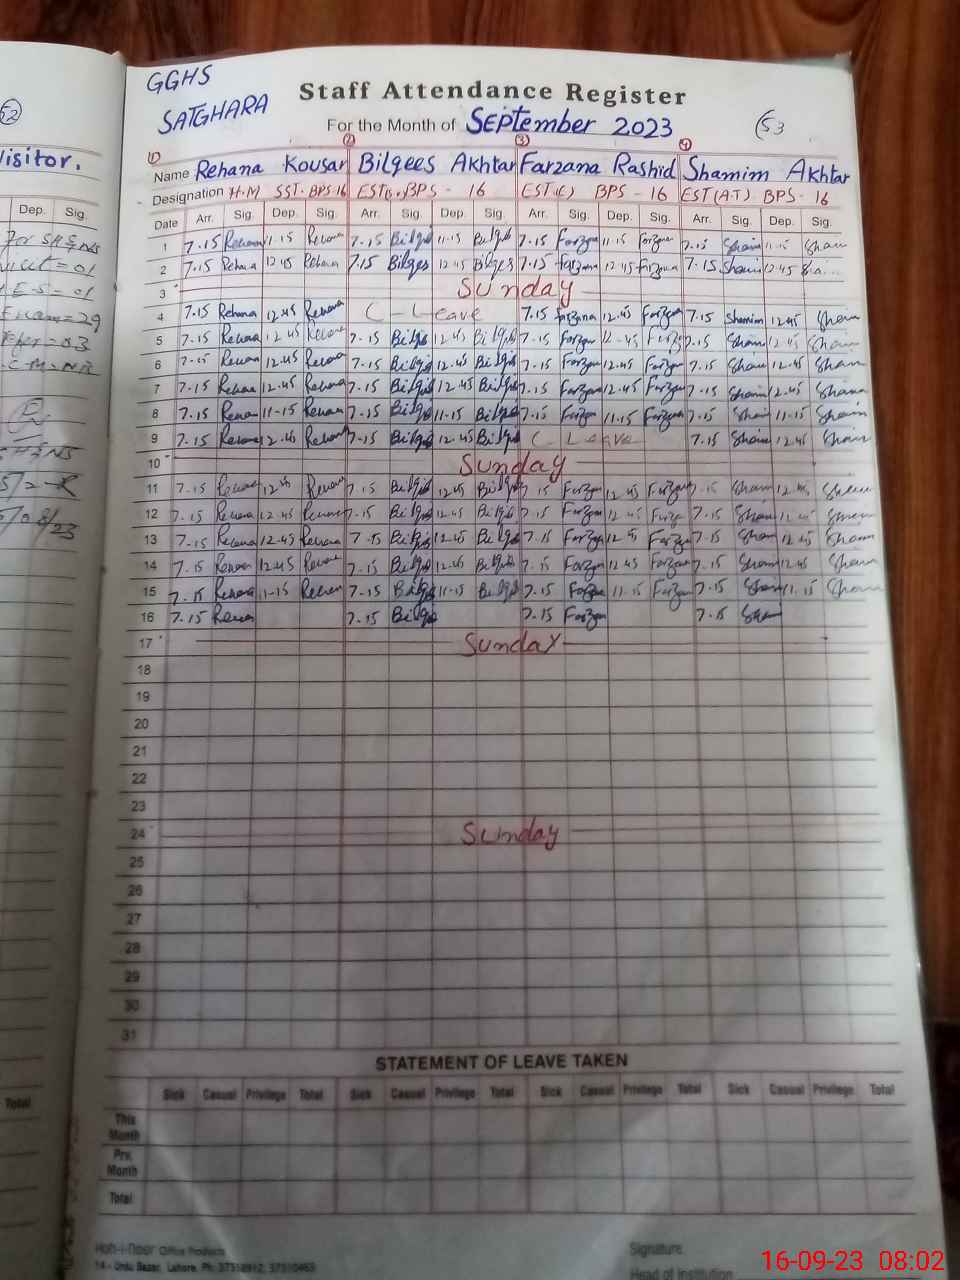 GGHS
SATGHARA
Staff Attendance Register
For the Month of September 2023
53
isitor.
Name Rehana Kousar Bilqees Akhtar Farzana Rashid Shamim Akhtar
Designation H.M SST-BPS-16 EST BPS - 16 EST(C) BPS - 16 EST(A.T) BPS - 16
Dep. Sig.
Date Arr. Sig. Dep. Sig. Arr. Sig. Dep. Sig. Arr. Sig. Dep. Sig. Arr. Sig. Dep. Sig.
1 7.15 Rehana 11.15 Rehana 7.15 Bilqis 11.15 Bilqis 7.15 Farzana 11.15 Farzana 7.15 Sham 11.15 Sham
2 7.15 Rehana 12.45 Rehana 7.15 Bilqes 12.45 Bilqes 7.15 Farzana 12.45 Farzana 7.15 Shamim 12.45
3 Sunday
4 7.15 Rehana 12.45 Rehana C - Leave 7.15 Farzana 12.45 Farzana 7.15 Shamim 12.45 Sham
5 7.15 Rehana 12.45 Rehana 7.15 Bilqis 12.45 Bilqis 7.15 Farzan 12.45 Farzan 7.15 Sham 12.45 Sham
6 7.15 Rehana 12.45 Rehana 7.15 Bilqis 12.45 Bilqis 7.15 Farzan 12.45 Farzan 7.15 Sham 12.45 Sham
7 7.15 Rehana 12.45 Rehana 7.15 Bilqis 12.45 Bilqis 7.15 Farzan 12.45 Farzan 7.15 Sham 12.45 Sham
8 7.15 Rehana 11-15 Rehana 7.15 Bilqis 11-15 Bilqis 7.15 Farzan 11.15 Farzan 7.15 Sham 11-15 Sham
9 7.15 Rehana 12.45 Rehana 7.15 Bilqis 12.45 Bilqis C - Leave 7.15 Sham 12.45 Sham
10 Sunday
11 7.15 Rehana 12.45 Rehana 7.15 Bilqis 12.45 Bilqis 7.15 Farzan 12.45 Farzan 7.15 Sham 12.45 Sham
12 7.15 Rehana 12.45 Rehana 7.15 Bilqis 12.45 Bilqis 7.15 Farzan 12.45 Farzan 7.15 Sham 12.45 Sham
13 7.15 Rehana 12.45 Rehana 7.15 Bilqis 12.45 Bilqis 7.15 Farzan 12.45 Farzan 7.15 Sham 12.45 Sham
14 7.15 Rehana 12.45 Rehana 7.15 Bilqis 12.45 Bilqis 7.15 Farzan 12.45 Farzan 7.15 Sham 12.45 Sham
15 7.15 Rehana 11-15 Rehana 7.15 Bilqis 11-15 Bilqis 7.15 Farzan 11.15 Farzan 7.15 Sham 11.15 Sham
16 7.15 Rehana 7.15 Bilqis 7.15 Farzan 7.15 Sham
17 Sunday
18
19
20
21
22
23
24 Sunday
25
26
27
28
29
30
31
STATEMENT OF LEAVE TAKEN
Sick Casual Privilege Total Sick Casual Privilege Total Sick Casual Privilege Total Sick Casual Privilege Total
Total
This Month
Prv. Month
Total
Koh-i-Noor Office Products
14 - Urdu Bazar, Lahore. Ph:
Signature
Head of Institution
16-09-23 08:02